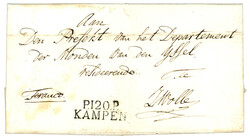 Aan
Den Prefekt van het Departement
der Monden van den Yssel
residerende
te
Franco
Zwolle
P120P
KAMPEN